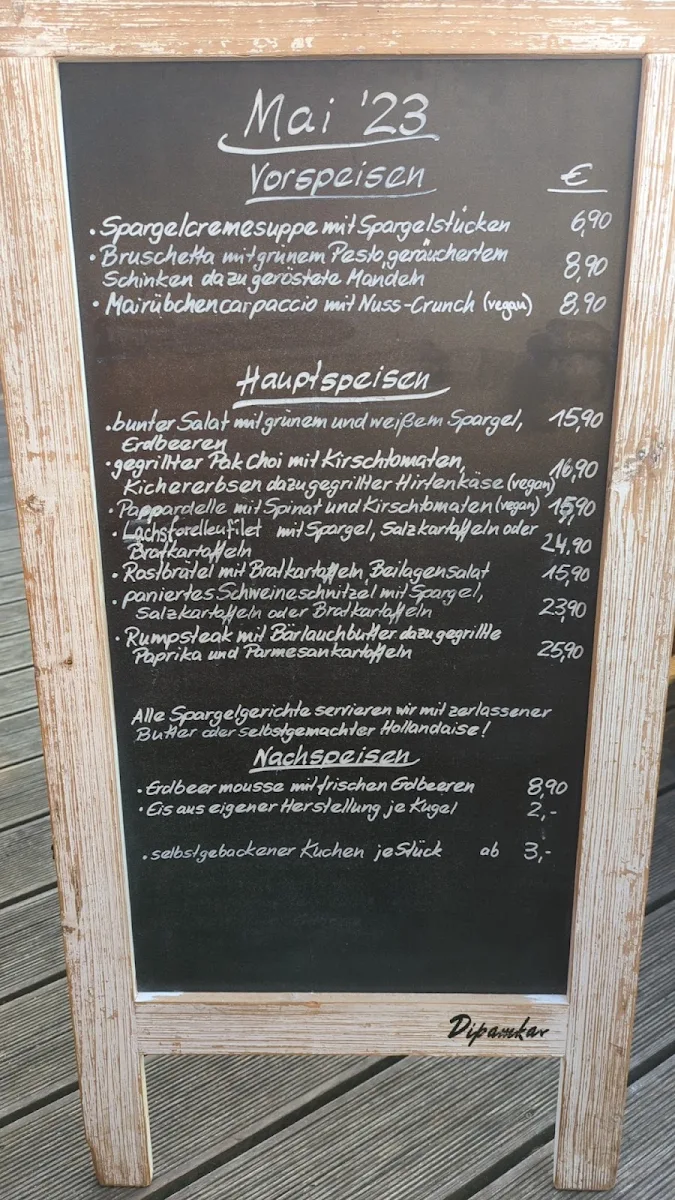 Mai '23
Vorspeisen €
• Spargelcremesuppe mit Spargelstücken 6,90
• Bruschetta mit grünem Pesto, geräuchertem
Schinken dazu geröstete Mandeln 8,90
• Mairübchencarpaccio mit Nuss-Crunch (vegan) 8,90
Hauptspeisen
• bunter Salat mit grünem und weißem Spargel, 15,90
Erdbeeren
• gegrillter Pak Choi mit Kirschtomaten,
Kichererbsen dazu gegrillter Hirtenkäse (vegan) 16,90
• Pappardelle mit Spinat und Kirschtomaten (vegan) 15,90
• Lachsforellenfilet mit Spargel, Salzkartoffeln oder
Bratkartoffeln 24,90
• Rostbrätel mit Bratkartoffeln, Beilagensalat 15,90
• paniertes Schweineschnitzel mit Spargel,
Salzkartoffeln oder Bratkartoffeln 23,90
• Rumpsteak mit Bärlauchbutter dazu gegrillte
Paprika und Parmesankartoffeln 25,90
Alle Spargelgerichte servieren wir mit zerlassener
Butter oder selbstgemachter Hollandaise!
Nachspeisen
• Erdbeermousse mit frischen Erdbeeren 8,90
• Eis aus eigener Herstellung je Kugel 2,-
• selbstgebackener Kuchen je Stück ab 3,-
Dipamkar